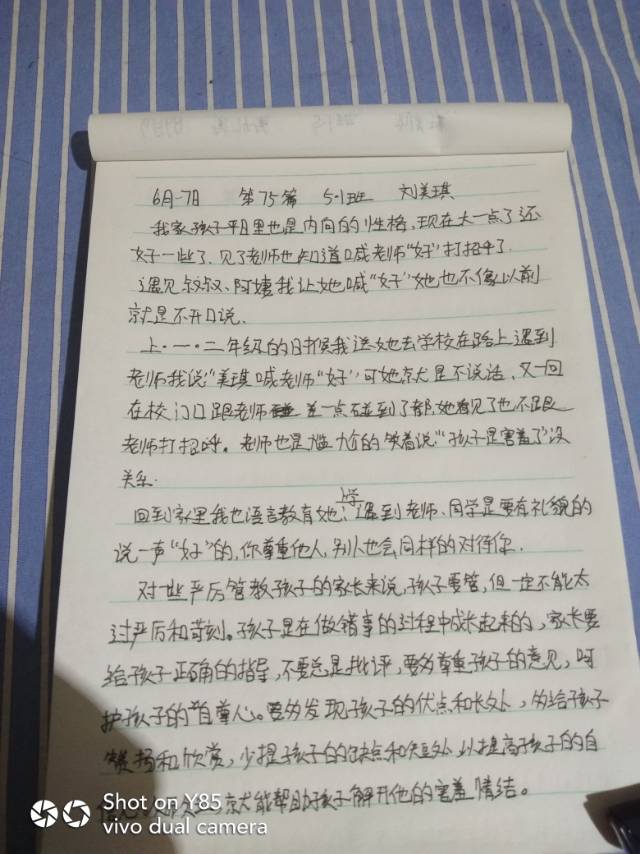 6月7日 第75篇 5·1班 刘美琪
我家孩子平日里也是内向的性格,现在大一点了还
好一些了,见了老师也知道喊老师“好”打招乎了.
遇见叔叔、阿姨我让她喊“好”她也不像以前
就是不开口说.
上·一·二年级的时候我送她去学校在路上遇到
老师我说:“美琪喊老师“好”可她就是不说话,又一回
在校门口跟老师差一点碰到了都她看见了也不跟
老师打招呼。老师也是尴尬的笑着说:“孩子是害羞了”没
关系.
回到家里我也语言教育她,上学遇到老师、同学是要有礼貌的
说一声“好”的,你尊重他人,别人也会同样的对待你.
对一些严厉管教孩子的家长来说,孩子要管,但一定不能太
过严厉和苛刻。孩子是在做错事的过程中成长起来的,家长要
给孩子正确的指导,不要总是批评,要多尊重孩子的意见,呵
护孩子的“自尊心。要多发现孩子的优点和长处,多给孩子
赞扬和欣赏,少提孩子的缺点和短处,以提高孩子的自
就能帮助孩子解开他的害羞情结。
Shot on Y85
vivo dual camera